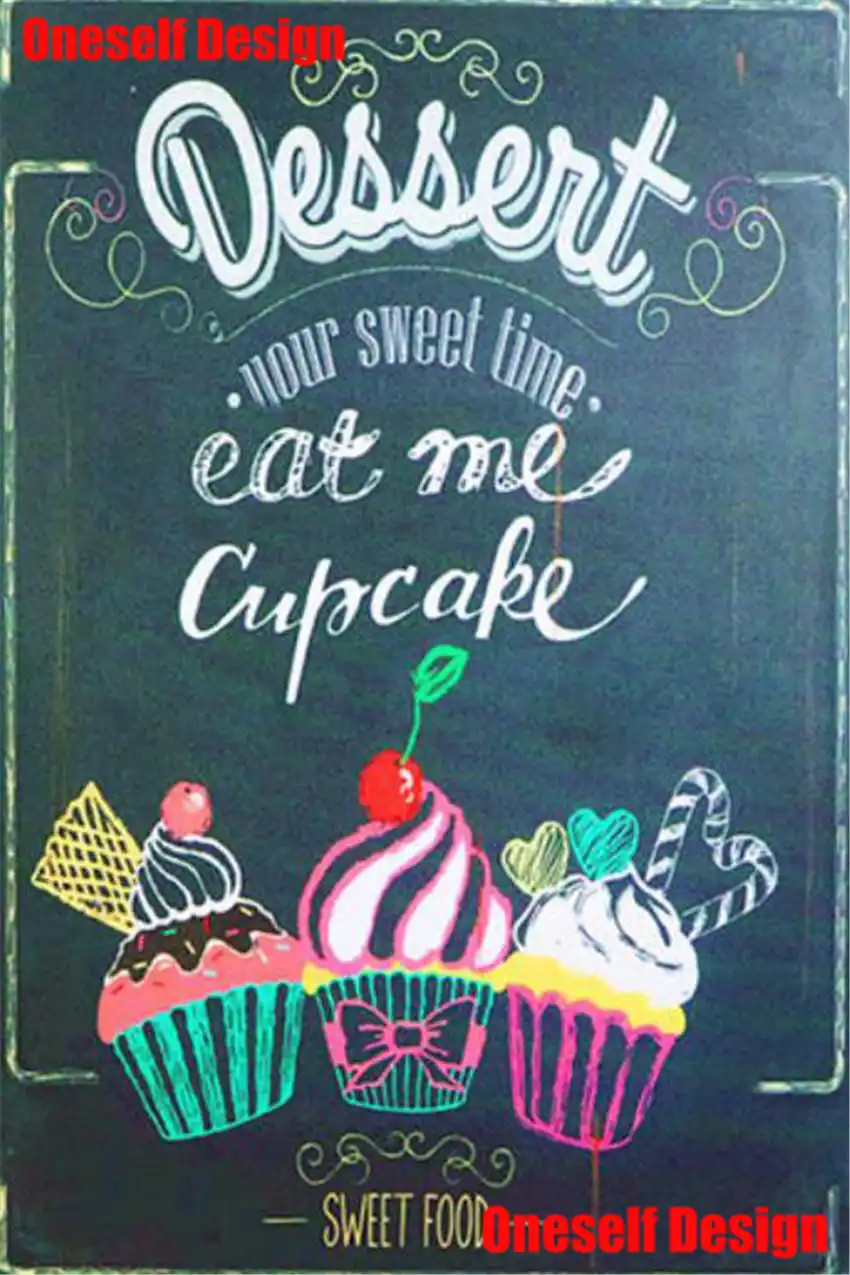 Oneself Design
Dessert
your sweet time
eat me
Cupcake
SWEET FOOD
Oneself Design